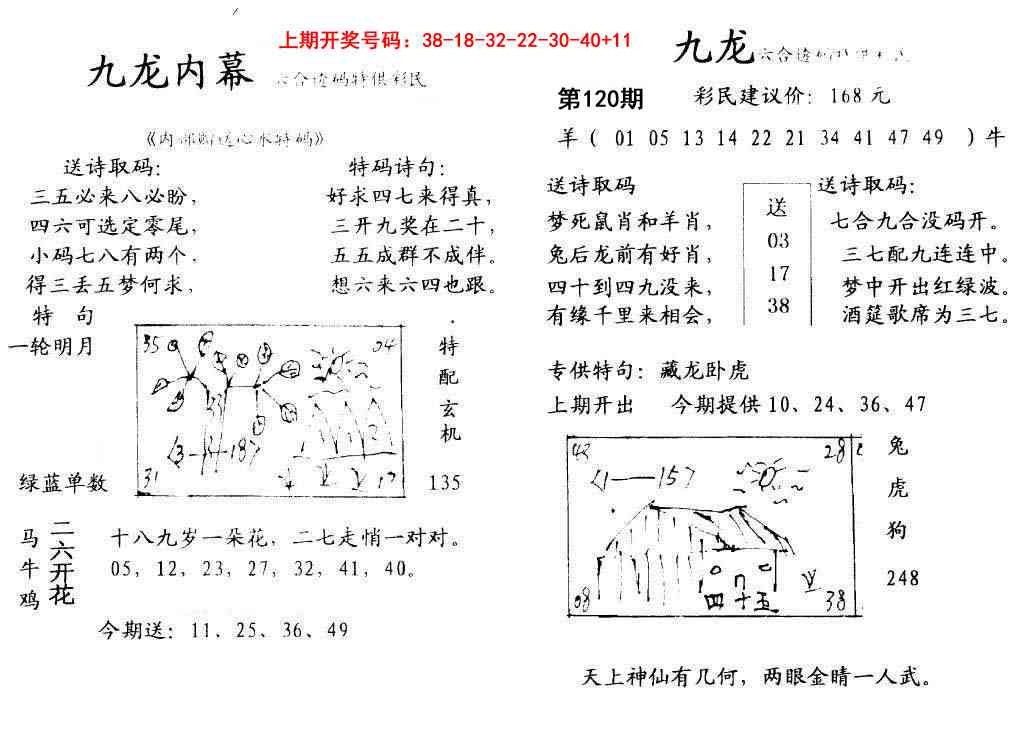 上期开奖号码：38-18-32-22-30-40+11
九龙内幕
六合透码特供彩民
送诗取码：
三五必来八必盼，
四六可选定零尾，
小码七八有两个．
得三丢五梦何求，
特码诗句：
好求四七来得真，
三开九奖在二十，
五五成群不成伴。
想六来六四也跟。
特 句
一轮明月
绿蓝单数
35
04
31
17
特
配
玄
机
135
马
牛
鸡
二六开花
十八九岁一朵花，二七走悄一对对。
05，12，23，27，32，41，40。
今期送：11、25、36、49
九龙
第120期
彩民建议价：168元
羊（ 01 05 13 14 22 21 34 41 47 49 ）牛
送诗取码
梦死鼠肖和羊肖，
兔后龙前有好肖，
四十到四九没来，
有缘千里来相会，
送
03
17
38
送诗取码：
七合九合没码开。
三七配九连连中。
梦中开出红绿波。
酒筵歌席为三七。
专供特句：藏龙卧虎
上期开出 今期提供10、24、36、47
28
08
38
四十五
兔
虎
狗
248
天上神仙有几何，两眼金晴一人武。